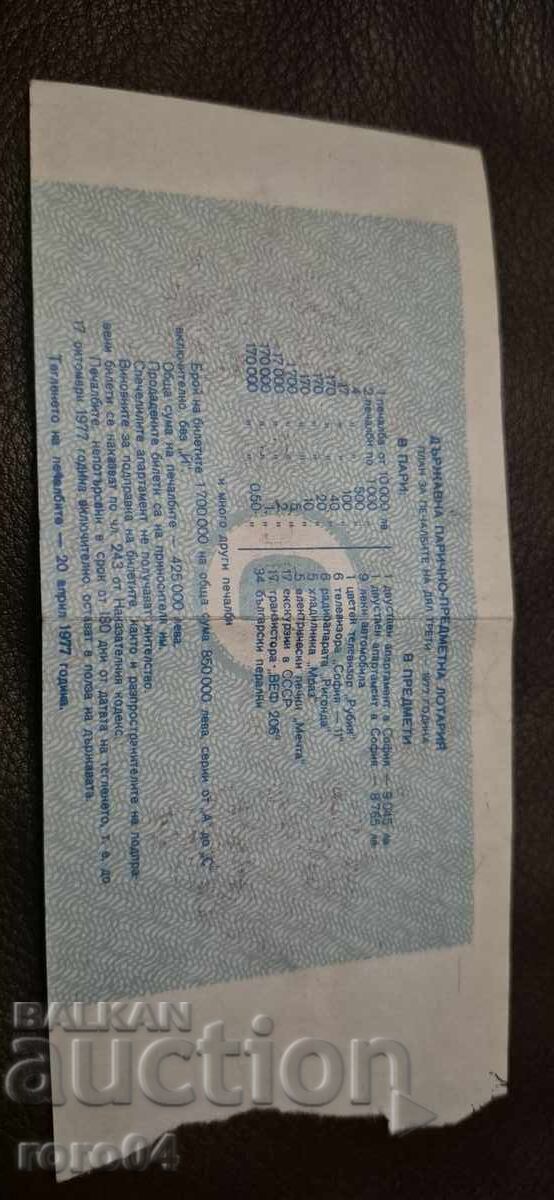 ДЪРЖАВНА ПАРИЧНО-ПРЕДМЕТНА ЛОТАРИЯ
ПЛАН ЗА ПЕЧАЛБИТЕ НА ДЯЛ ТРЕТИ 1977 ГОДИНА
В ПАРИ:
1 печалба от 10 000 лв
2 печалби по 1 000 "
4 " " 500 "
17 " " 100 "
170 " " 40 "
170 " " 20 "
170 " " 10 "
1 700 " " 5 "
17 000 " " 2 "
170 000 " " 1 "
170 000 " " 0,50 "
В ПРЕДМЕТИ
1 двустаен апартамент в София — 9 045 лв
1 двустаен апартамент в София — 8 765 лв
9 леки автомобила
1 цветен телевизор „Рубин"
6 телевизора „София — 11"
6 радиоапарата „Ригонда"
5 хладилника „Мраз"
5 електрически печки „Мечта"
17 екскурзии в СССР
17 транзистора „ВЕФ 206"
34 български перални
и много други печалби
Брой на билетите 1 700 000 на обща сума 850 000 лева, серии от „А" до „С"
включително, без „Й".
Обща сума на печалбите — 425 000 лева.
Продадените билети са на приносителя им.
Спечелилите апартамент не получават жителство.
Виновните за подправка на билетите, както и разпространителите на подпра-
вени билети се наказват по чл. 243 от Наказателния кодекс.
Печалбите, непотърсени в срок от 180 дни от датата на тегленето, т. е. до
17 октомври 1977 година включително, остават в полза на държавата.
Тегленето на печалбите — 20 април 1977 година.
BALKAN
auction
roro04